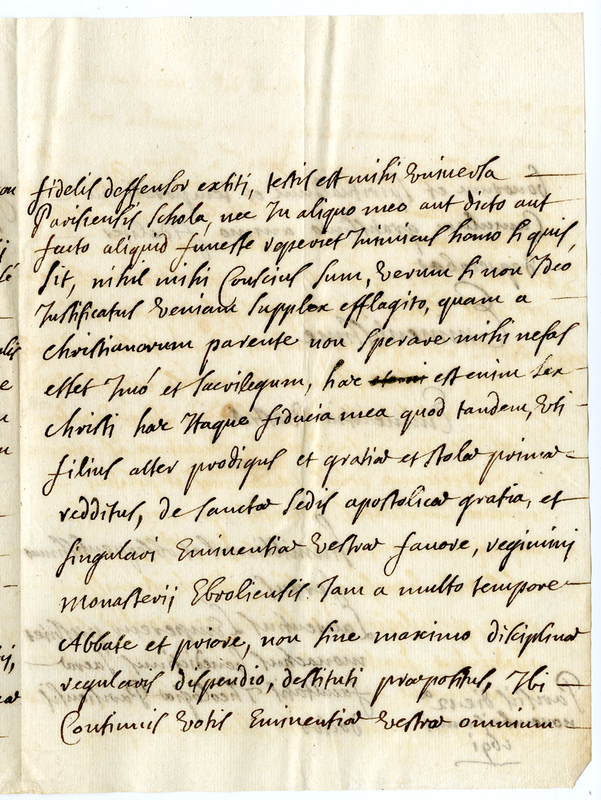 fidelis deffensor extiti, testis est mihi Universa
Parisiensis schola, nec In aliquo meo aut dicto aut
facto aliquid funeste reperiet Inimicus homo si quis,
sit, nihil mihi Conscius sum, verum si non Ideo
Iustificatus veniam supplex efflagito, quam a
christianorum parente non sperare mihi nefas
esset Imó et sacrilegum, hæc est enim Lex
christi hæc Itaque fiducia mea quod tandem, Uti
filius alter prodigus et gratiæ et stolæ primæ
redditus, de sanctæ sedis apostolicæ gratia, et
singulari Eminentiæ Vestræ favore, regimini
Monasterij Ebroliensis. Iam a multo tempore
Abbate et priore, non sine maximo disciplinæ
regularis dispendio, destituti præpositus, Ibi
Continuis votis Eminentiæ Vestræ omnium